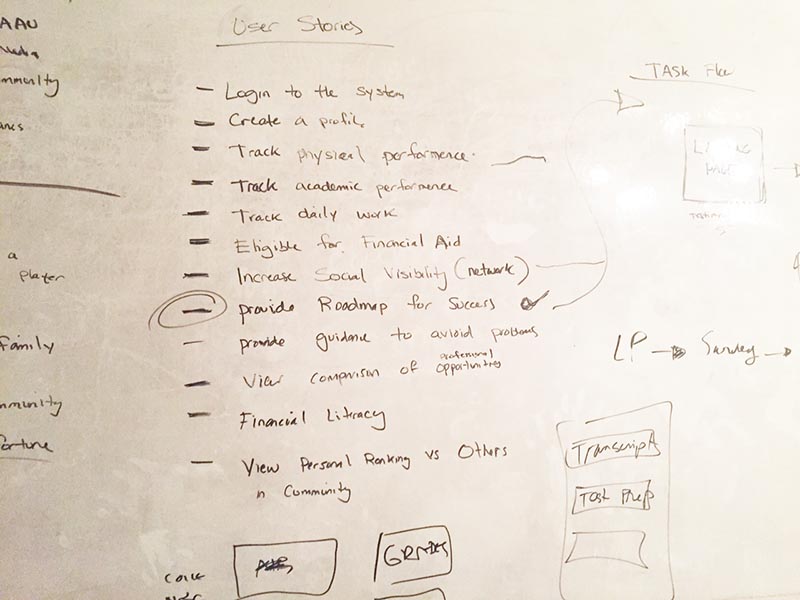 AAU
mmunity
a
player
Family
mmunity
Fortune
User Stories
Login to the system
Create a profile
Track physical performence
Track academic performence
Track daily work
Eligible for Financial Aid
Increase Social Visibility (network)
provide Roadmap for Success
provide guidance to avioid problems
View comparison of professional opportunities
Financial Literacy
View Personal Ranking vs Others
in Community
GRADES
TASK Flow
LP → Survey →
Transcripts
Test Prep